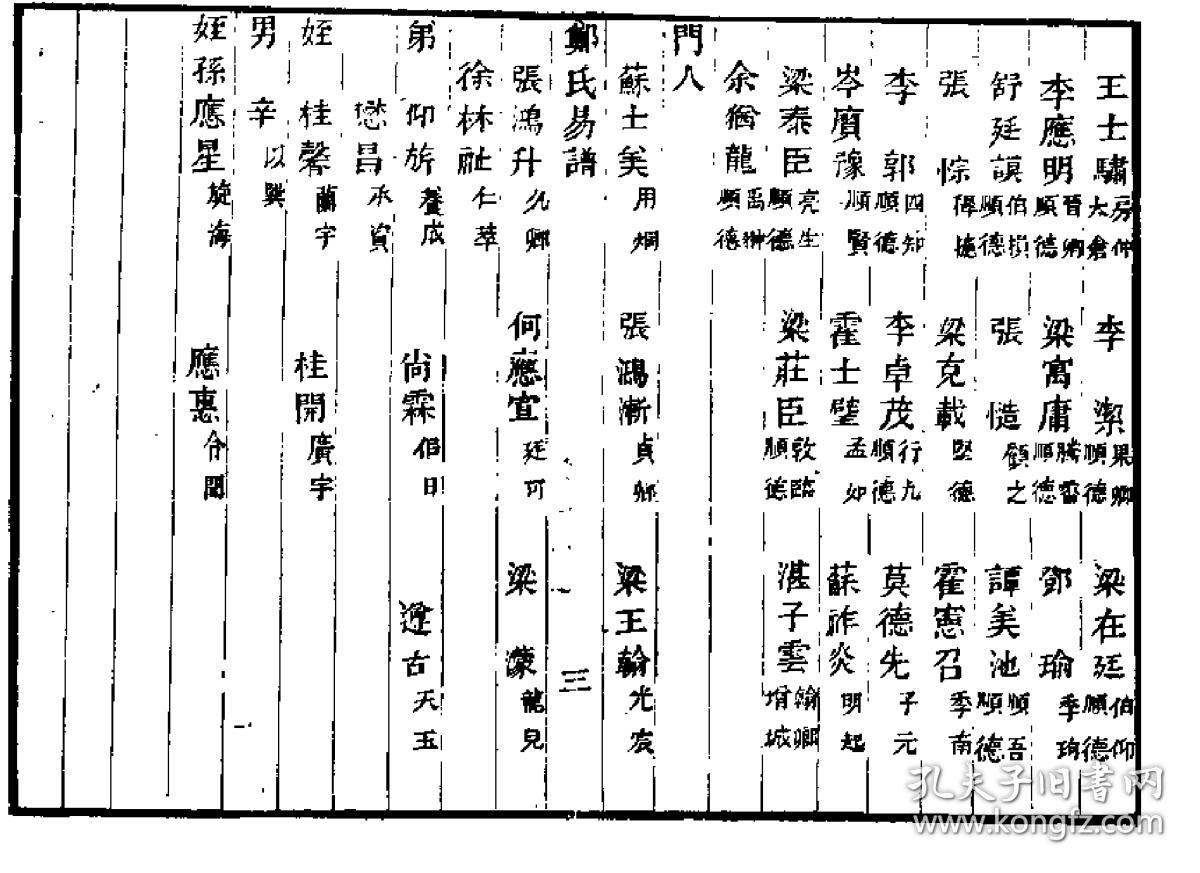 王士驌 房仲 太倉 李潔 果卿 順德 梁在廷 伯仰 順德
李應明 晉卿 順德 梁寓庸 勝番 順德 鄧瑜 季珣
舒廷謨 伯損 順德 張慥 顧之 譚美池 順吾 順德
張悰 梁克載 堅德 霍憲召 季南
李郭 四知 順德 李卓茂 行九 順德 莫德先 子元
岑賡豫 順賢 霍士璧 孟如 蘇祚炎 明起
梁泰臣 亮生 順德 梁莊臣 敦臨 順德 湛子雲 翰卿 增城
余猶龍 禹翀 順德
門人
蘇士美 用烱 張鴻漸 貞卿 梁王翰 光宸
鄭氏易譜 三
張鴻升 允卿 何應宜 廷可 梁濛 龍兒
徐林祉 仁萃
弟 仰旂 養成 尚霖 伯日 遵古 天玉
懋昌 承資
姪 桂馨 蘭宇 桂開 廣宇
男 辛 以巽
姪孫應星 旋海 應惠 令聞
孔夫子旧书网
www.kongfz.com